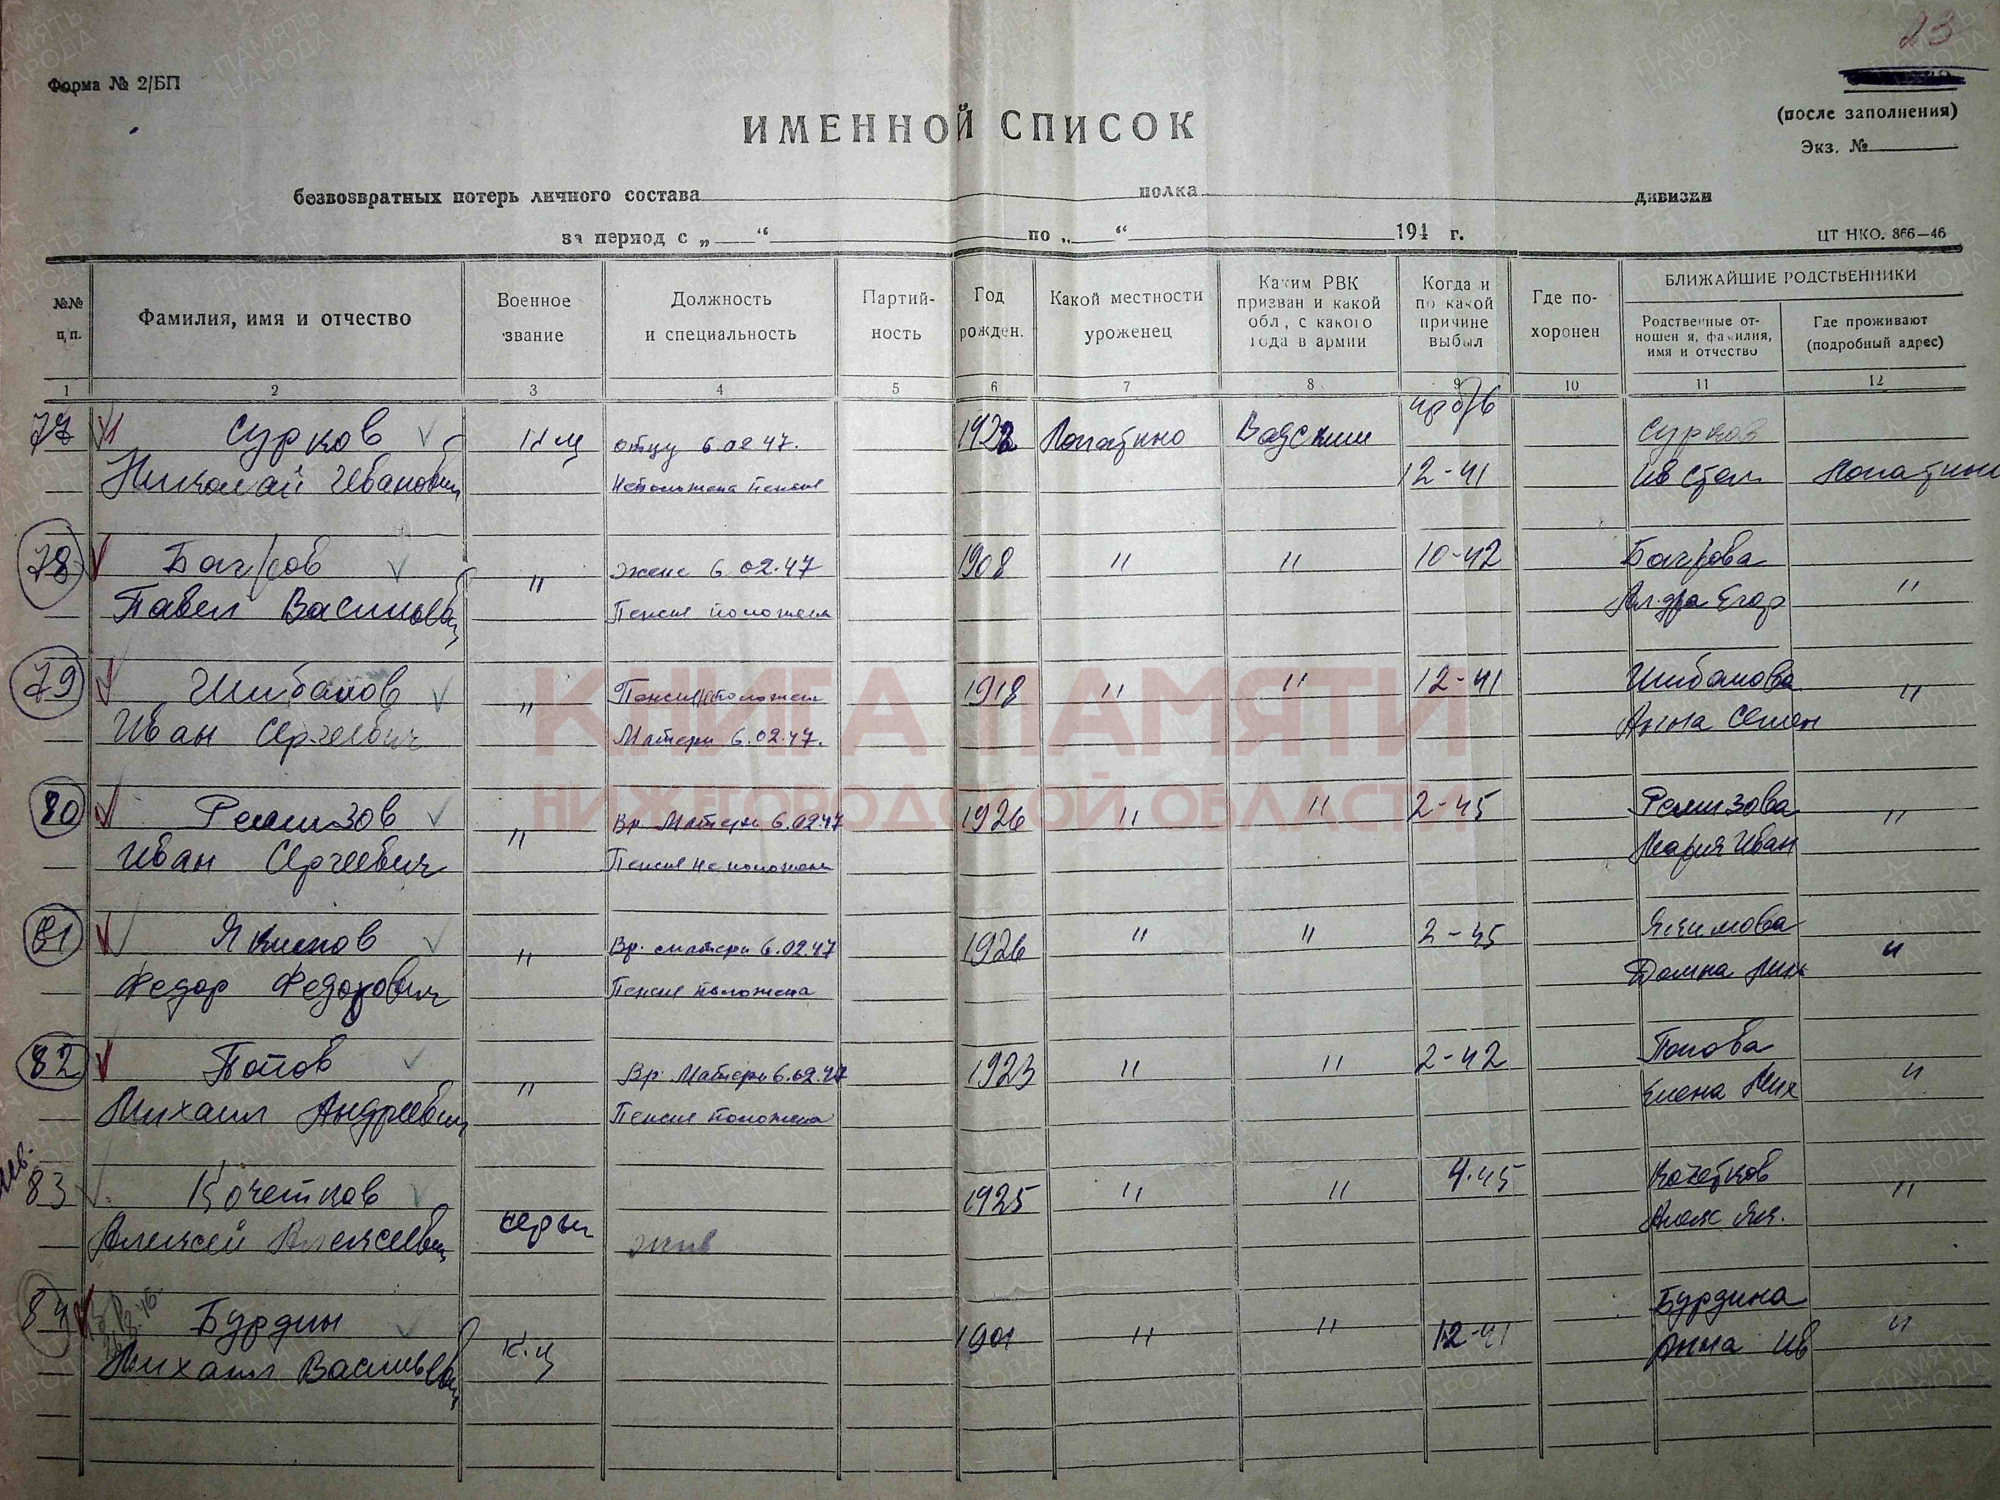 23
Форма № 2/БП
(после заполнения)
Экз. №
ИМЕННОЙ СПИСОК
безвозвратных потерь личного состава полка дивизии
за период с „ “ по „ “ 194 г.
ЦТ НКО. 866—46
№№ п.п.
Фамилия, имя и отчество
Военное звание
Должность и специальность
Партий- ность
Год рожден.
Какой местности уроженец
Каким РВК призван и какой обл, с какого года в армии
Когда и по какой причине выбыл
Где по- хоронен
БЛИЖАЙШИЕ РОДСТВЕННИКИ
Родственные от- ношен я, фамилия, имя и отчество
Где проживают (подробный адрес)
1 2 3 4 5 6 7 8 9 10 11 12
77 Сурков отцу 6.02.47. 1922 Лопатино Вадский Сурков
Николай Иванович Неположена Пенсия 12-41 Ив Степ Лопатино
78 Багров " жене 6.02.47 1908 " " 10-42 Багрова "
Павел Васильевич Пенсия положена Ал-дра Егор
79 Шибалов " Пенсия неположен 1918 " " 12-41 Шибалова "
Иван Сергеевич Матери 6.02.47. Анна Семен
80 Ремизов " Вр. Матери 6.02.47 1926 " " 2-45 Ремизова "
Иван Сергеевич Пенсия Неположена Мария Иван
81 Якимов " Вр. матери 6.02.47 1926 " " 2-45 Якимова "
Федор Федорович Пенсия положена Домна Мих
82 Попов " Вр. Матери 6.02.47 1923 " " 2-42 Попова "
Михаил Андреевич Пенсия положена Елена Мих
83 Кочетков 1925 " " 4.45 Кочетков "
Алексей Алексеевич жив
84 Бурдин 1901 " " 12-41 Бурдина "
Михаил Васильевич Анна Ив
КНИГА ПАМЯТИ
НИЖЕГОРОДСКОЙ ОБЛАСТИ
ПАМЯТЬ НАРОДА